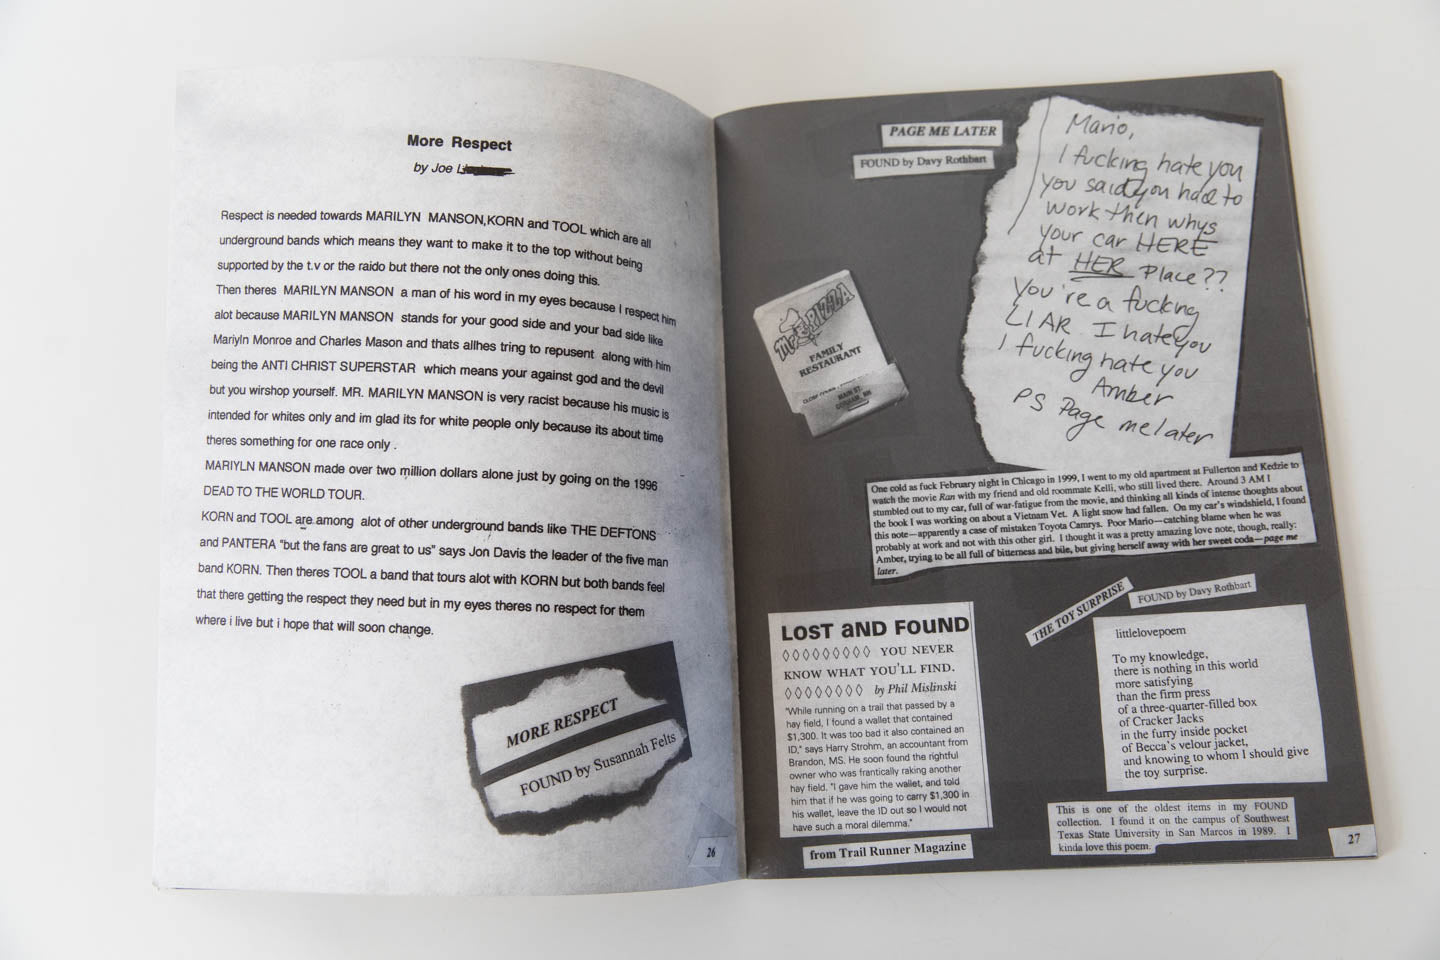 More Respect
by Joe
Respect is needed towards MARILYN MANSON,KORN and TOOL which are all
underground bands which means they want to make it to the top without being
supported by the t.v or the raido but there not the only ones doing this.
Then theres MARILYN MANSON a man of his word in my eyes because I respect him
alot because MARILYN MANSON stands for your good side and your bad side like
Mariyln Monroe and Charles Mason and thats allhes tring to repusent along with him
being the ANTI CHRIST SUPERSTAR which means your against god and the devil
but you wirshop yourself. MR. MARILYN MANSON is very racist because his music is
intended for whites only and im glad its for white people only because its about time
theres something for one race only .
MARIYLN MANSON made over two million dollars alone just by going on the 1996
DEAD TO THE WORLD TOUR.
KORN and TOOL are among alot of other underground bands like THE DEFTONS
and PANTERA "but the fans are great to us" says Jon Davis the leader of the five man
band KORN. Then theres TOOL a band that tours alot with KORN but both bands feel
that there getting the respect they need but in my eyes theres no respect for them
where i live but i hope that will soon change.
MORE RESPECT
FOUND by Susannah Felts
26
PAGE ME LATER
FOUND by Davy Rothbart
Mario,
I fucking hate you
you said you had to
work then whys
your car HERE
at HER place??
You're a fucking
LIAR I hate you
I fucking hate you
Amber
PS Page me later
Mr. PIZZA
FAMILY
RESTAURANT
MAIN ST.
GORHAM, NH
One cold as fuck February night in Chicago in 1999, I went to my old apartment at Fullerton and Kedzie to
watch the movie Ran with my friend and old roommate Kelli, who still lived there. Around 3 AM I
stumbled out to my car, full of war-fatigue from the movie, and thinking all kinds of intense thoughts about
the book I was working on about a Vietnam Vet. A light snow had fallen. On my car's windshield, I found
this note—apparently a case of mistaken Toyota Camrys. Poor Mario—catching blame when he was
probably at work and not with this other girl. I thought it was a pretty amazing love note, though, really:
Amber, trying to be all full of bitterness and bile, but giving herself away with her sweet coda—page me
later.
LOST aND FOUND
YOU NEVER
KNOW WHAT YOU'LL FIND.
by Phil Mislinski
"While running on a trail that passed by a
hay field, I found a wallet that contained
$1,300. It was too bad it also contained an
ID," says Harry Strohm, an accountant from
Brandon, MS. He soon found the rightful
owner who was frantically raking another
hay field. "I gave him the wallet, and told
him that if he was going to carry $1,300 in
his wallet, leave the ID out so I would not
have such a moral dilemma."
from Trail Runner Magazine
THE TOY SURPRISE
FOUND by Davy Rothbart
littlelovepoem
To my knowledge,
there is nothing in this world
more satisfying
than the firm press
of a three-quarter-filled box
of Cracker Jacks
in the furry inside pocket
of Becca's velour jacket,
and knowing to whom I should give
the toy surprise.
This is one of the oldest items in my FOUND
collection. I found it on the campus of Southwest
Texas State University in San Marcos in 1989. I
kinda love this poem.
27